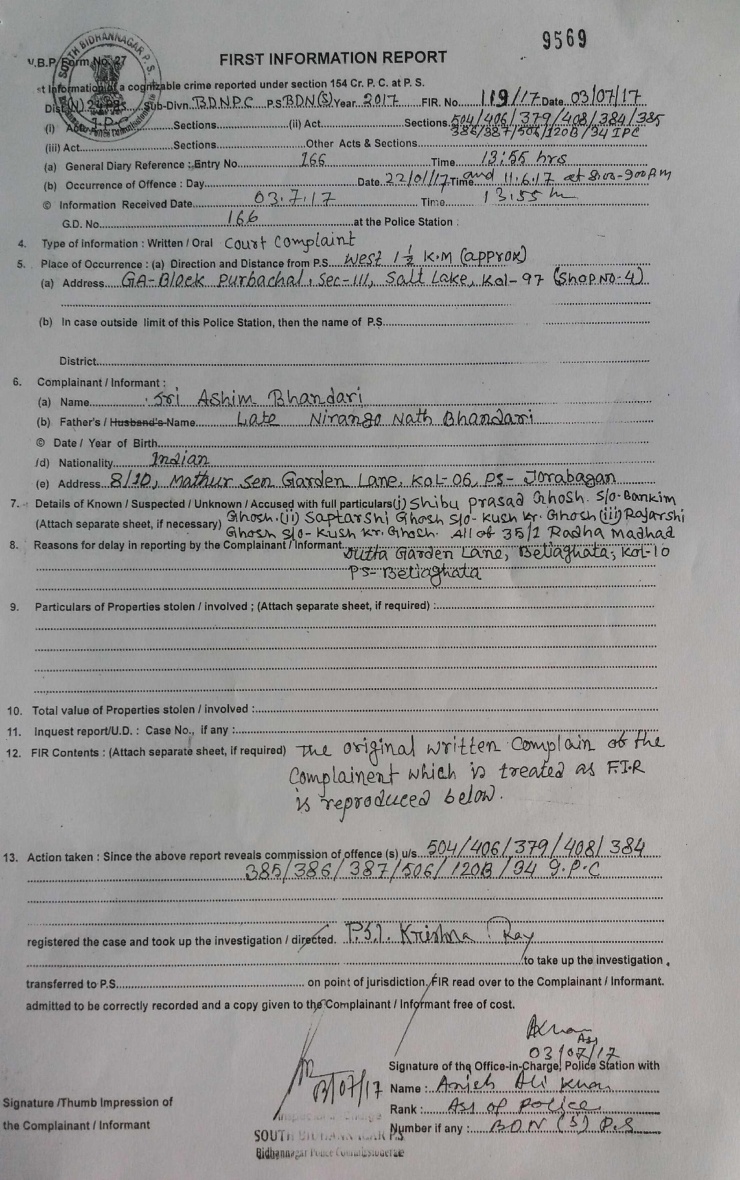 9569
SOUTH BIDHANNAGAR P.S.
W.B.P. Form No. 27
FIRST INFORMATION REPORT
st Information of a cognizable crime reported under section 154 Cr. P. C. at P. S.
Dist (N) 24 PGS Sub-Divn. BDNPC P.S BDN(S) Year 2017 FIR. No. 119/17 Date 03/07/17
(i) Act I.P.C Sections (ii) Act Sections 504/406/379/408/384/385
386/387/506/120B/34 IPC
(iii) Act Sections Other Acts & Sections
(a) General Diary Reference : Entry No 166 Time 13:55 hrs
(b) Occurrence of Offence : Day Date 22/01/17 Time and 11.6.17 at 8:00-9:00 AM
© Information Received Date 03.7.17 Time 13.55 hr
G.D. No. 166 at the Police Station :
4. Type of information : Written / Oral Court Complaint
5. Place of Occurrence : (a) Direction and Distance from P.S. West 1 1/2 K.M (approx)
(a) Address GA-Block Purbachal, Sec-III, Salt Lake, Kol-97 (Shop No-4)
(b) In case outside limit of this Police Station, then the name of P.S
District
6. Complainant / Informant :
(a) Name Sri Ashim Bhandari
(b) Father's / Husband's Name Late Nirango Nath Bhandari
© Date / Year of Birth
/d) Nationality Indian
(e) Address 8/1D, Mathur Sen Garden Lane, Kol-06, PS- Jorabagan
7. Details of Known / Suspected / Unknown / Accused with full particulars (i) Shibu Prasad Ghosh S/o- Bankim
(Attach separate sheet, if necessary) Ghosh. (ii) Saptarshi Ghosh S/o- Kush Kr. Ghosh (iii) Rajarshi
Ghosh S/o- Kush Kr. Ghosh. All of 35/2 Radha Madhad
8. Reasons for delay in reporting by the Complainant / Informant Dutta Garden Lane, Beliaghata, Kol-10
PS- Beliaghata
9. Particulars of Properties stolen / involved ; (Attach separate sheet, if required) :
10. Total value of Properties stolen / involved :
11. Inquest report/U.D. : Case No., if any :
12. FIR Contents : (Attach separate sheet, if required) The original written Complain of the
Complainent which is treated as F.I.R
is reproduced below.
13. Action taken : Since the above report reveals commission of offence (s) u/s 504/406/379/408/384
385/386/387/506/120B/34 I.P.C
registered the case and took up the investigation / directed. P.S.I. Krishna Ray
to take up the investigation ,
transferred to P.S. on point of jurisdiction, FIR read over to the Complainant / Informant.
admitted to be correctly recorded and a copy given to the Complainant / Informant free of cost.
03/07/17
Signature of the Office-in-Charge, Police Station with
03/07/17
Name : Anich Ali Khan
Signature /Thumb Impression of
Rank : Asi of Police
the Complainant / Informant
Number if any : BDN (S) P.S
SOUTH BIDHANNAGAR P.S.
Bidhannagar Police Commissionerate